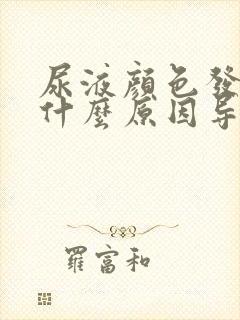 尿液顔色發
什麼原因导
羅富和